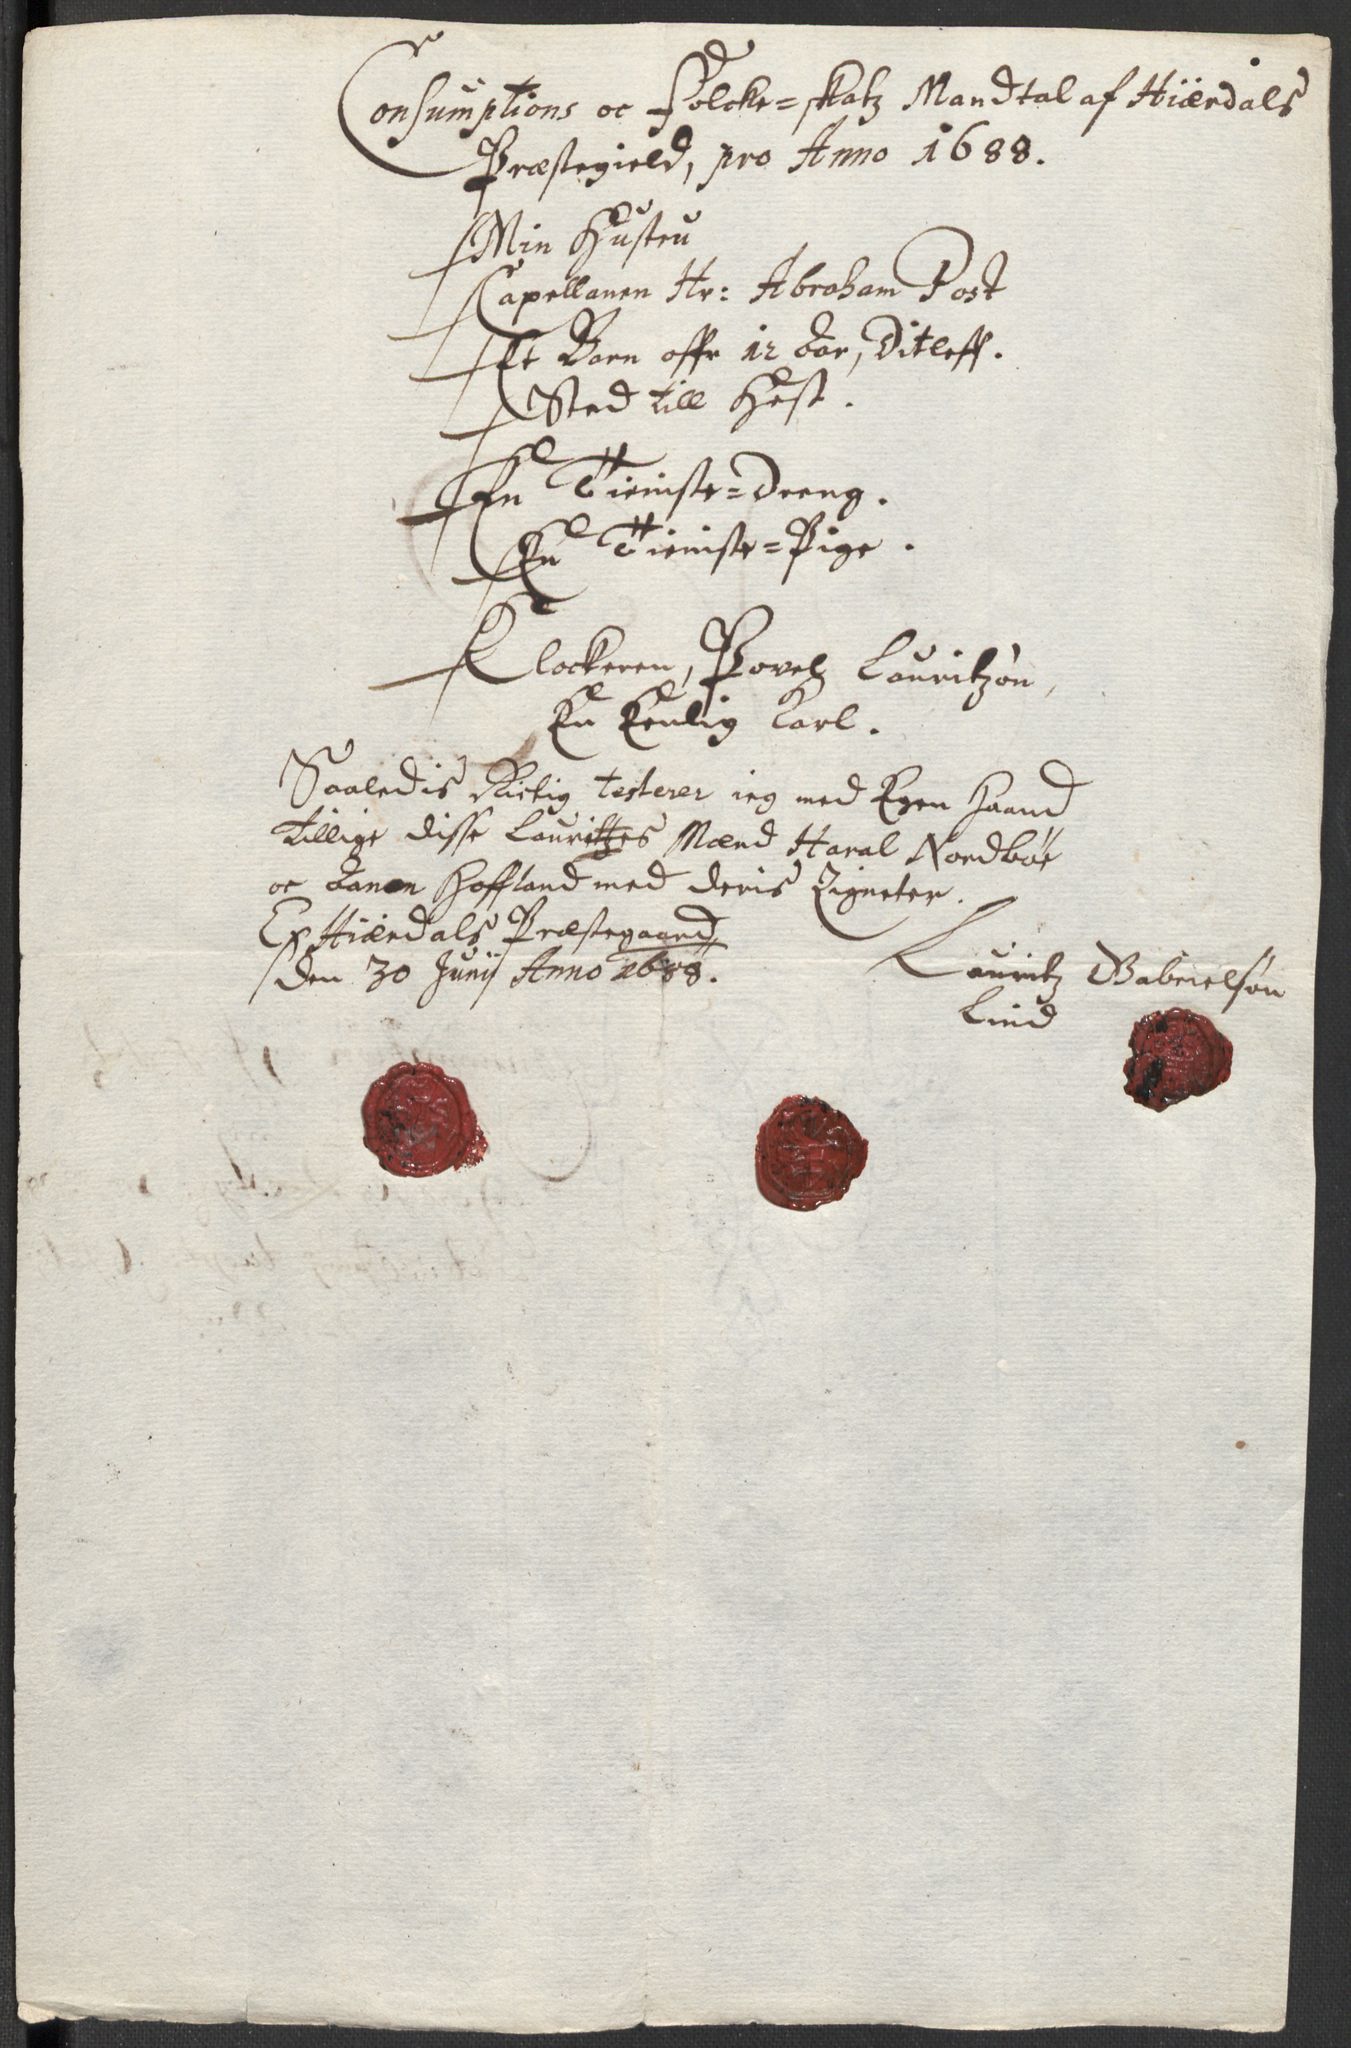 Consumptions oc Folcke=skatz Mandtal af Hiærdals
Præstegield, pro Anno 1688.
Min Hustru
Capellanen Hr: Abraham Post
Et Barn offr 12 Aar, Ditleff.
Sted till Hest.
En Tieniste=Dreng.
En Tieniste=Pige.
Klockeren, Povel Lauritzøn,
En Eenlig Karl.
Saaledis Rictig testerer ieg med Egen Haand
tillige disse Laurittes Mænd Haral Nordbøe
oc Hoffland med deris Zigneter.
Ex Hiærdals Præstegaard
den 30 Junij Anno 1688.
Lauritz Gabrielsøn
Lind